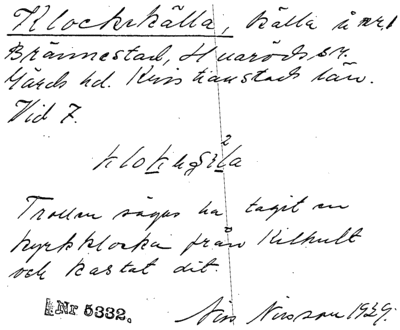 Klockekälla, källa å nr 1
Brännestad, Huaröds sn.
Gärds hd. Kristianstads län.
Vid 7.
2
Trollen sägas ha tagit en
kyrkklocka från Kilhult
och kastat dit.
Nr 5332.
Nils Nilsson 1929.